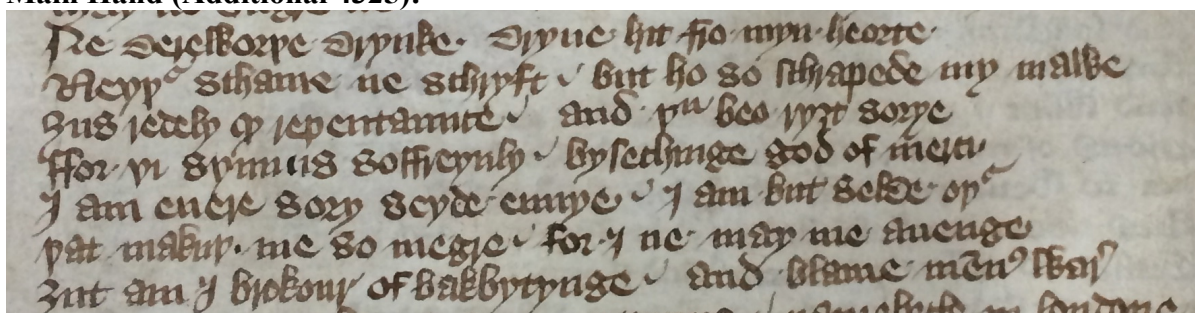 Main Hand (Additional 4325):
Ne dereworþe drynke · dryue hit fro myn heorte ·
Neyþ schame ne schryft · but ho so schrapede my mawe
ȝus redely qþ repentaunce · and þu beo ryȝt sorye
ffor þi synnus soffreynly · bysechinge god of merci ·
I am euere sory seyde enuye · I am but selde oþ
þat makuþ me so megre · for I ne may me auenge
ȝut am I brokour of bakbytynge · and blame men war
in londone